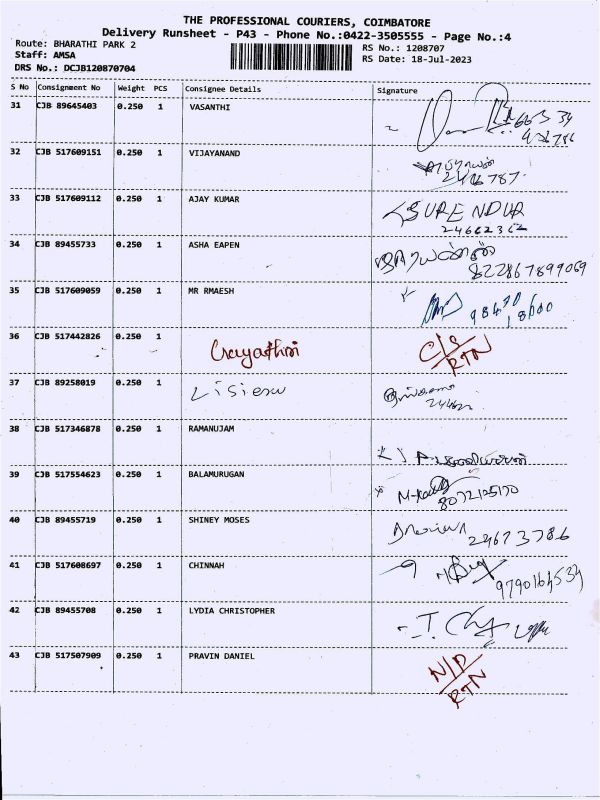 THE PROFESSIONAL COURIERS, COIMBATORE
Delivery Runsheet - P43 - Phone No.:0422-3505555 - Page No.:4
Route: BHARATHI PARK 2
RS No.: 1208707
Staff: AMSA
RS Date: 18-Jul-2023
DRS No.: DCJB120870704
S No Consignment No Weight PCS Consignee Details Signature
31 CJB 89645403 0.250 1 VASANTHI
32 CJB 517609151 0.250 1 VIJAYANAND
2416787
33 CJB 517609112 0.250 1 AJAY KUMAR SURENDUR
24662362
34 CJB 89455733 0.250 1 ASHA EAPEN
822867899069
35 CJB 517609059 0.250 1 MR RMAESH 98430
18600
36 CJB 517442826 0.250 1 C/S
RTN
37 CJB 89258019 0.250 1
38 CJB 517346878 0.250 1 RAMANUJAM
39 CJB 517554623 0.250 1 BALAMURUGAN
8072125170
40 CJB 89455719 0.250 1 SHINEY MOSES 24673786
41 CJB 517608697 0.250 1 CHINNAH
9790164534
42 CJB 89455708 0.250 1 LYDIA CHRISTOPHER
43 CJB 517507909 0.250 1 PRAVIN DANIEL N/D
RTN